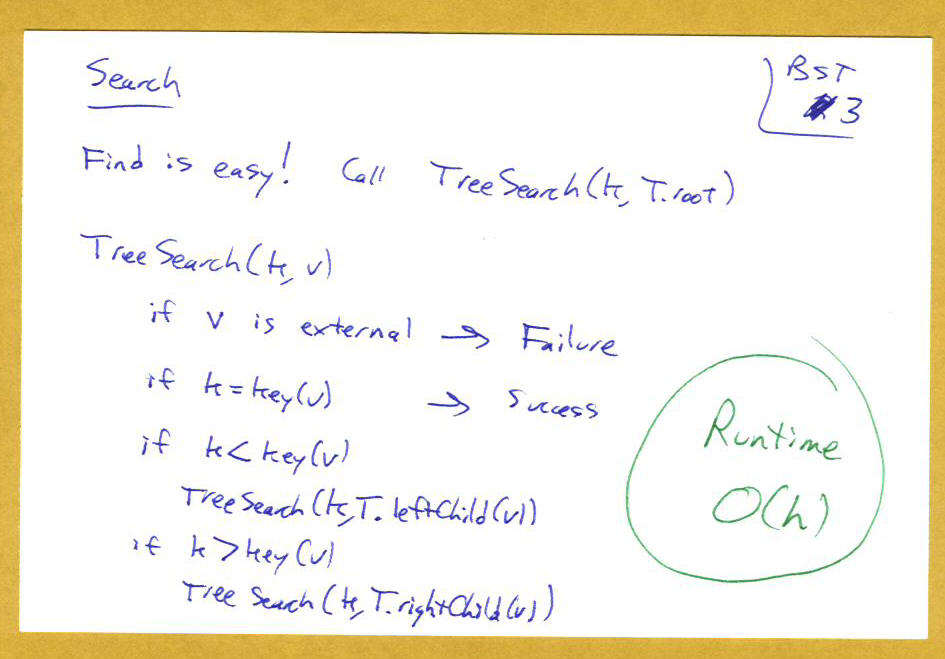 Search
BST
#3
Find is easy! Call TreeSearch(k, T.root)
TreeSearch(k, v)
if v is external → Failure
if k = key(v) → Success
if k < key(v)
TreeSearch(k, T.leftChild(v))
if k > key(v)
Tree Search(k, T.rightChild(v))
Runtime
O(h)